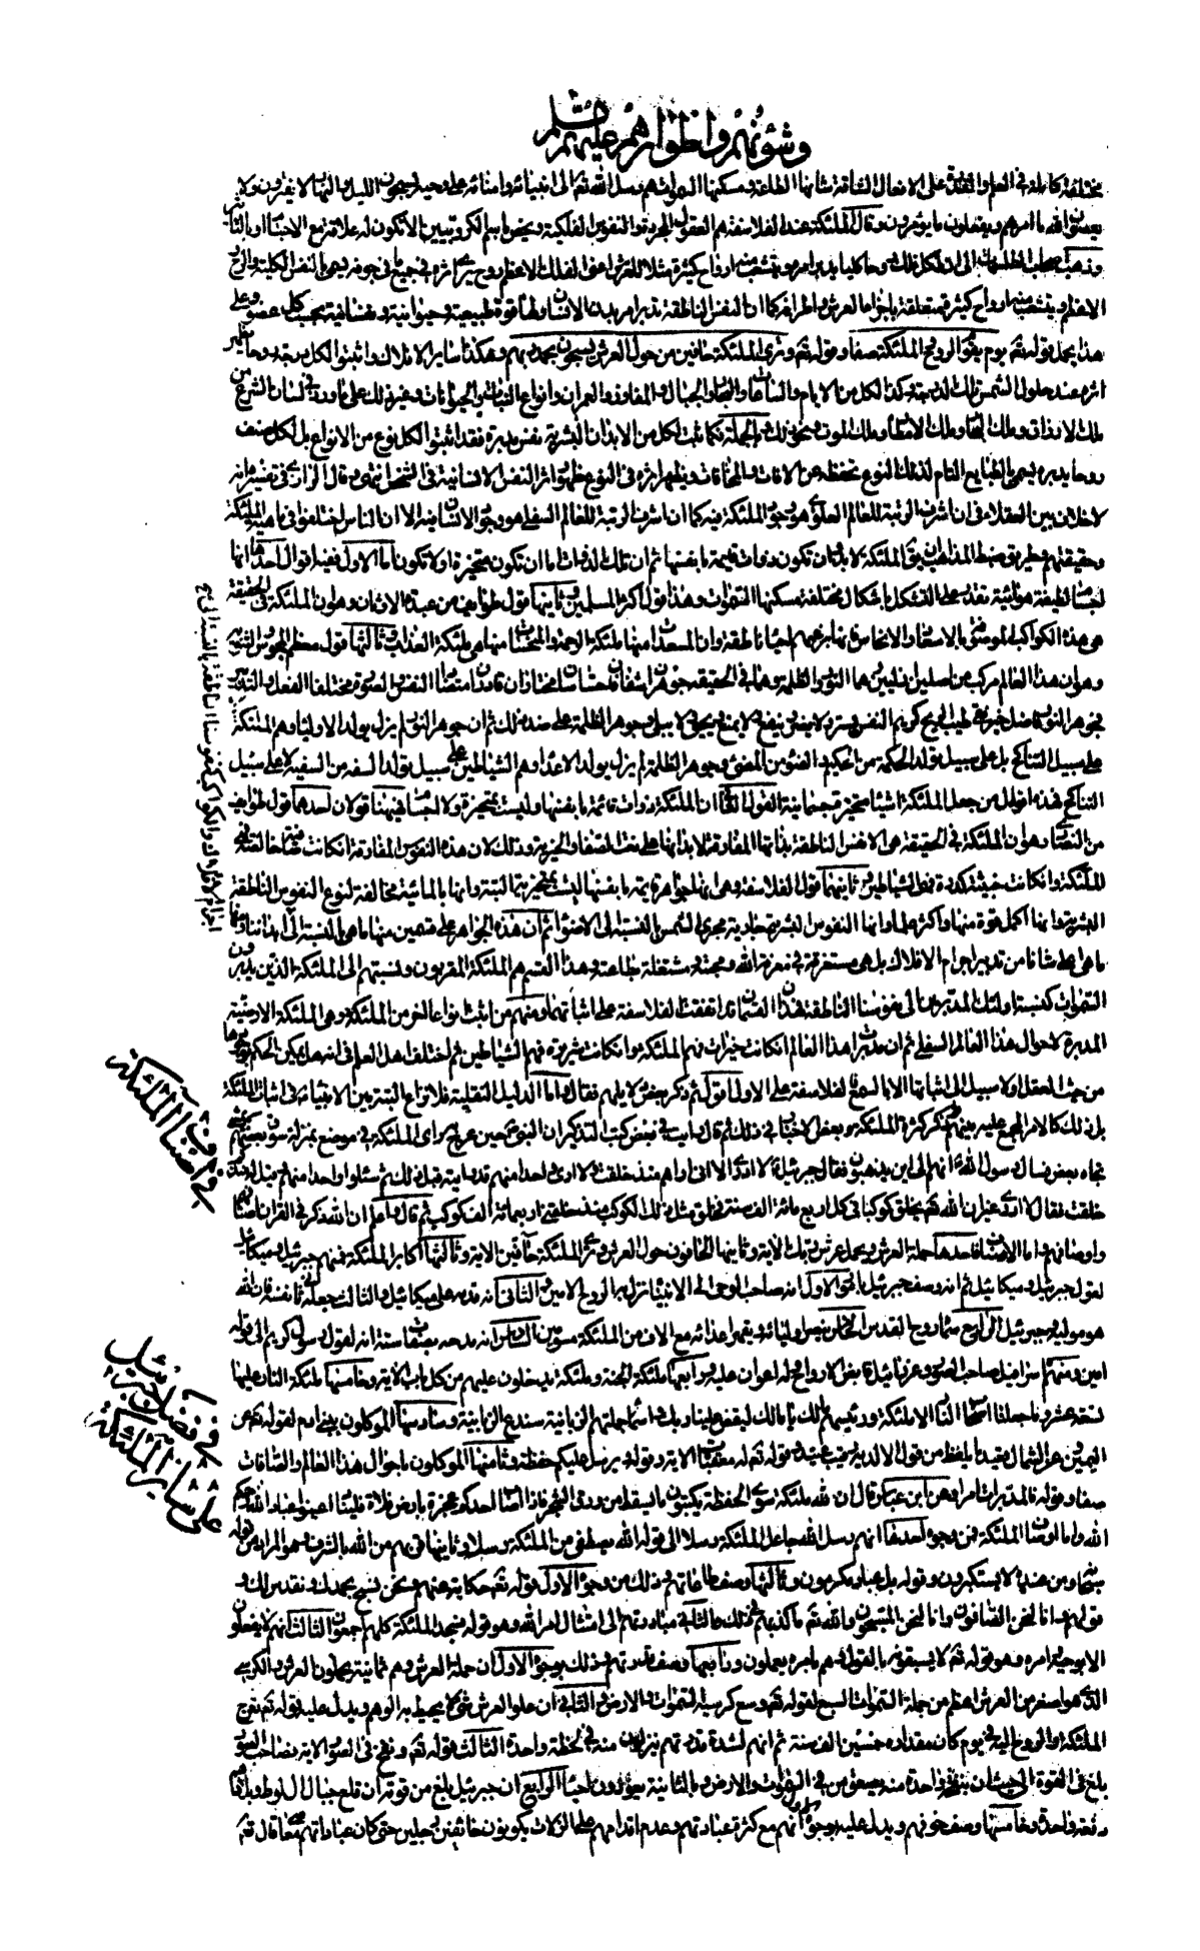 وشئونهم واطوارهم عليهم السلم
مختلفة كاملة في العلم والقدرة على الافعال الشاقة شانها الطاعة ومسكنها السموات هم رسل الله تعم الى انبيائه وامنائه على وحيه يسبحون الليل والنهار لا يفترون ولا
يعصون الله ما امرهم ويفعلون ما يؤمرون وقال الملئكة عند الفلاسفة هم العقول المجردة والنفوس الفلكية ويخص باسم الكروبيين الا تكون له علاقة مع الاجسام ولو بالتاثير
وذهب اصحاب الطلسمات الى ان لكل فلك روحا كليا يدبر امره ويتشعب منه ارواح كثيرة مثلا للعرش اعنى الفلك الاعظم روح يسرى اثره في جميع ما في جوفه يسمى بالنفس الكلية والروح
الاعظم ويتشعب منه ارواح كثيرة متعلقة باجزاء العرش واطرافه كما ان النفس الناطقة تدبر امر بدن الانسان ولها قوة طبيعية وحيوانية ونفسانية بحسب كل عضو وعلى
هذا يحمل قوله تعم يوم يقوم الروح والملئكة صفا وقوله تعم وترى الملئكة حافين من حول العرش يسبحون بحمد ربهم وهكذا سائر الافلاك واثبتوا لكل درجة روحا يظهر
اثره عند حلول الشمس تلك الدرجة وكذا لكل من الايام والساعات والبحار والجبال والمفاوز والعمران وانواع النباتات والحيوانات وغير ذلك على ما ورد في لسان الشرع من
ملك الارزاق وملك البحار وملك الامطار وملك الموت ونحو ذلك وبالجملة فكما ثبت لكل من الابدان البشرية نفس مدبرة فقد اثبتوا لكل نوع من الانواع بل لكل صنف
روحا يدبره يسمى بالطبايع التام لذلك النوع تحفظه عن الافات والمخافات ويظهر اثره في النوع ظهور اثر النفس الانسانية في الشخص انتهى وقال الرازي في تفسيره انه
لا خلاف بين العقلاء في ان شرف الرتبة للعالم العلوى هو وجود الملئكة فيه كما ان شرف الرتبة للعالم السفلى هو وجود الانسان فيه الا ان الناس اختلفوا في ماهية الملئكة
وحقيقتهم وطريق ضبط المذاهب ان يق الملئكة لا بد ان تكون ذوات قايمة بانفسها ثم ان تلك الذوات اما ان تكون متحيزة اولا تكون اما الاول ففيه اقوال احدها انها
اجسام لطيفة هوائية تقدر على التشكل باشكال مختلفة مسكنها السموات وهذا قول اكثر المسلمين وثانيها قول طوايف من عبدة الاوثان وهو ان الملئكة في الحقيقة
هي هذه الكواكب الموصوفة بالاسعاد والانحاس فانها بزعمهم احياء ناطقة وان المسعدات منها ملئكة الرحمة والمنحسات منها هي ملئكة العذاب وثالثها قول معظم المجوس والثنوية
وهو ان هذا العالم مركب من اصلين ازليين هما النور والظلمة وهما في الحقيقة جوهران شفافان حساسان مختاران قادران متضادا النفس والصورة مختلفا الفعل والتدبير
فجوهر النور فاضل خير نقي طيب الريح كريم النفس يسر ولا يضر وينفع ولا يمنع ويحيى ولا يبلى وجوهر الظلمة على ضد ذلك ثم ان جوهر النور لم يزل يولد الاولياء وهم الملئكة
على سبيل التناكح بل على سبيل تولد الحكمة من الحكيم والضوء من المضيء وجوهر الظلمة لم يزل يولد الاعداء وهم الشياطين على سبيل تولد السفه من السفيه لا على سبيل
التناكح فهذه اقوال من جعل الملئكة اشياء متحيزة جسمانية القول الثاني ان الملئكة ذوات قائمة بانفسها وليست بمتحيزة ولا اجسام فيهنا قولان احدهما قول طوايف
من النصارى وهو ان الملئكة في الحقيقة هي الانفس الناطقة بذاتها المفارقة لابدانها على نعت الصفاء والخيرية وذلك لان هذه النفوس المفارقة ان كانت صافية خالصة فهي
الملئكة وان كانت خبيثة كدرة فهي الشياطين وثانيهما قول الفلاسفة وهي انها جواهر قايمة بانفسها ليست بمتحيزة البتة وانها بالماهية مخالفة لنوع النفوس الناطقة
البشرية وانها اكمل قوة منها واكثر علما وانها للنفوس البشرية جارية مجرى الشمس بالنسبة الى الاضواء ثم ان هذه الجواهر على قسمين منها ما هي بالنسبة الى
ما هي اعلى شانا من تدبير اجرام الافلاك بل هي مستغرقة في معرفة الله ومحبته ومشتغلة بطاعته وهذا القسم هم الملئكة المقربون ونسبتهم الى الملئكة الذين يدبرون
السموات كنسبة اولئك المدبرين الى نفوسنا الناطقة فهذان القسمان قد اتفقت الفلاسفة على اثباتهما ومنهم من اثبت نوعا اخر من الملئكة وهي الملئكة الارضية
المدبرة لاحوال هذا العالم السفلى ثم ان مدبرات هذا العالم ان كانت خيرات فهم الملئكة وان كانت شريرة فهم الشياطين ثم اختلف اهل العلم في انه هل يمكن الحكم بوجودها
من حيث العقل او لا سبيل الى اثباتها الا بالسمع فالفلاسفة على الاول ثم ذكر بعض دلايلهم فقال واما الدلايل النقلية فلا نزاع البتة بين الانبياء في اثبات الملئكة
بل ذلك كالامر المجمع عليه بينهم ثم ذكر كثرة الملئكة وبعض الاخبار في ذلك ثم قال رايت في بعض كتب التذكير ان النبي حين عرج به راى الملئكة في موضع بمنزلة سوق بعضهم يمشى
تجاه بعض فسال رسول الله انهم الى اين يذهبون فقال جبرئيل لا ادرى الا انى اراهم منذ خلقت ولا ارى واحدا منهم قد رايته قبل ذلك ثم سئلوا واحدا منهم وقيل له منذ كم
خلقت فقال لا ادرى غير ان الله تعم يخلق كوكبا في كل اربع مائة الف سنة فخلق مثل ذلك الكوكب منذ خلقنى اربعمائة الف كوكب ثم قال واعلم ان الله ذكر في القران اصنافهم
واوصافهم اما الاصناف فاحدها حملة العرش ويحمل عرش ربك الاية وثانيها الحافون حول العرش وترى الملئكة حافين الاية وثالثها اكابر الملئكة فمنهم جبرئيل وميكائيل
لقوله جبريل وميكائيل ثم انه وصف جبرئيل بامور الاول انه صاحب الوحى الى الانبياء نزل به الروح الامين والثاني انه قدمه على ميكائيل والثالث جعله ثاني نفسه فان الله
هو موليه وجبرئيل الرابع سماه روح القدس الخامس ينصر اولياءه ويقهر اعداءه مع الاف من الملئكة مسومين السادس انه مدحه بصفات ستة انه لقول رسول كريم الى قوله
امين ومنهم اسرافيل صاحب الصور وعزرائيل قابض الارواح وله اعوان عليه ورابعها ملئكة الجنة وملئكة يدخلون عليهم من كل باب الاية وخامسها ملئكة النار عليها
تسعة عشر وما جعلنا اصحاب النار الا ملئكة ورئيسهم مالك يا مالك ليقض علينا ربك واسماء جملتهم الزبانية سندع الزبانية وسادسها الموكلون ببني ادم لقوله تعم عن
اليمين وعن الشمال قعيد ما يلفظ من قول الا لديه رقيب عتيد وقوله تعم له معقبات الاية وقوله ويرسل عليكم حفظة وثامنها الموكلون باحوال هذا العالم والصافات
صفا وقوله فالمدبرات امرا وعن ابن عباس قال ان لله ملئكة سوى الحفظة يكتبون ما يسقط من ورق الشجر فاذا اصاب احدكم عجزة بارض فلاة فليناد اعينوا عباد الله رحمكم
الله واما اوصاف الملئكة فمن وجوه احدها انهم رسل الله جاعل الملئكة رسلا الى قوله الله يصطفى من الملئكة رسلا وثانيها قربهم من الله بالشرف وهو المراد من قوله
ومن عنده لا يستكبرون وقوله بل عباد مكرمون وثالثها وصف طاعاتهم وذلك من وجوه الاول قوله تعم حكاية عنهم ونحن نسبح بحمدك ونقدس لك و
قولهم وانا لنحن الصافون وانا لنحن المسبحون والله تعم ما كذبهم في ذلك والثاني مبادرتهم الى امتثال امر الله وهو قوله فسجد الملئكة كلهم اجمعون الثالث انهم لا يفعلون
الا بوحيه وامره وهو قوله تعم لا يسبقونه بالقول وهم بامره يعملون ورابعها وصف قدرتهم وذلك بوجوه الاول ان حملة العرش وهم ثمانية يحملون العرش والكرسي
الذي هو اصغر من العرش اعظم من جملة السموات السبع لقوله تعم وسع كرسيه السموات والارض والثاني ان علو العرش شيء لا يحيط به الوهم ويدل عليه قوله تعم تعرج
الملئكة والروح اليه في يوم كان مقداره خمسين الف سنة ثم انهم لشدة قدرتهم ينزلون منه في لحظة واحدة الثالث قوله تعم ونفخ في الصور الاية فصاحب الصور
بلغ في القوة الى حيث ان بنفخة واحدة منه يصعق من في السموات والارض وبالثانية يعودون احياء الرابع ان جبرئيل بلغ من قوته ان قلع جبال ال لوط وبلادهم
دفعة واحدة وخامسها وصف خوفهم ويدل عليه بوجوه انهم مع كثرة عباداتهم وعدم اقدامهم على الزلات يكونون خائفين وجلين حتى كان عباداتهم معاصى قال تعم
في اصناف الملئكة
في فضل جبرئيل على سائر الملئكة